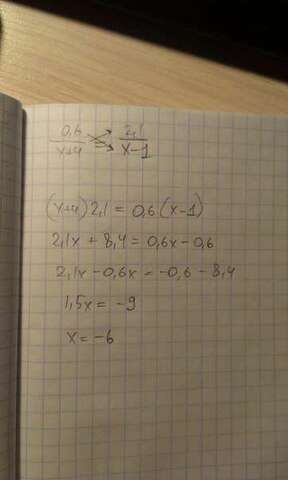 0,6/(x+4) = 2,1/(x-1)
(x+4)2,1 = 0,6(x-1)
2,1x + 8,4 = 0,6x - 0,6
2,1x - 0,6x = -0,6 - 8,4
1,5x = -9
x = -6